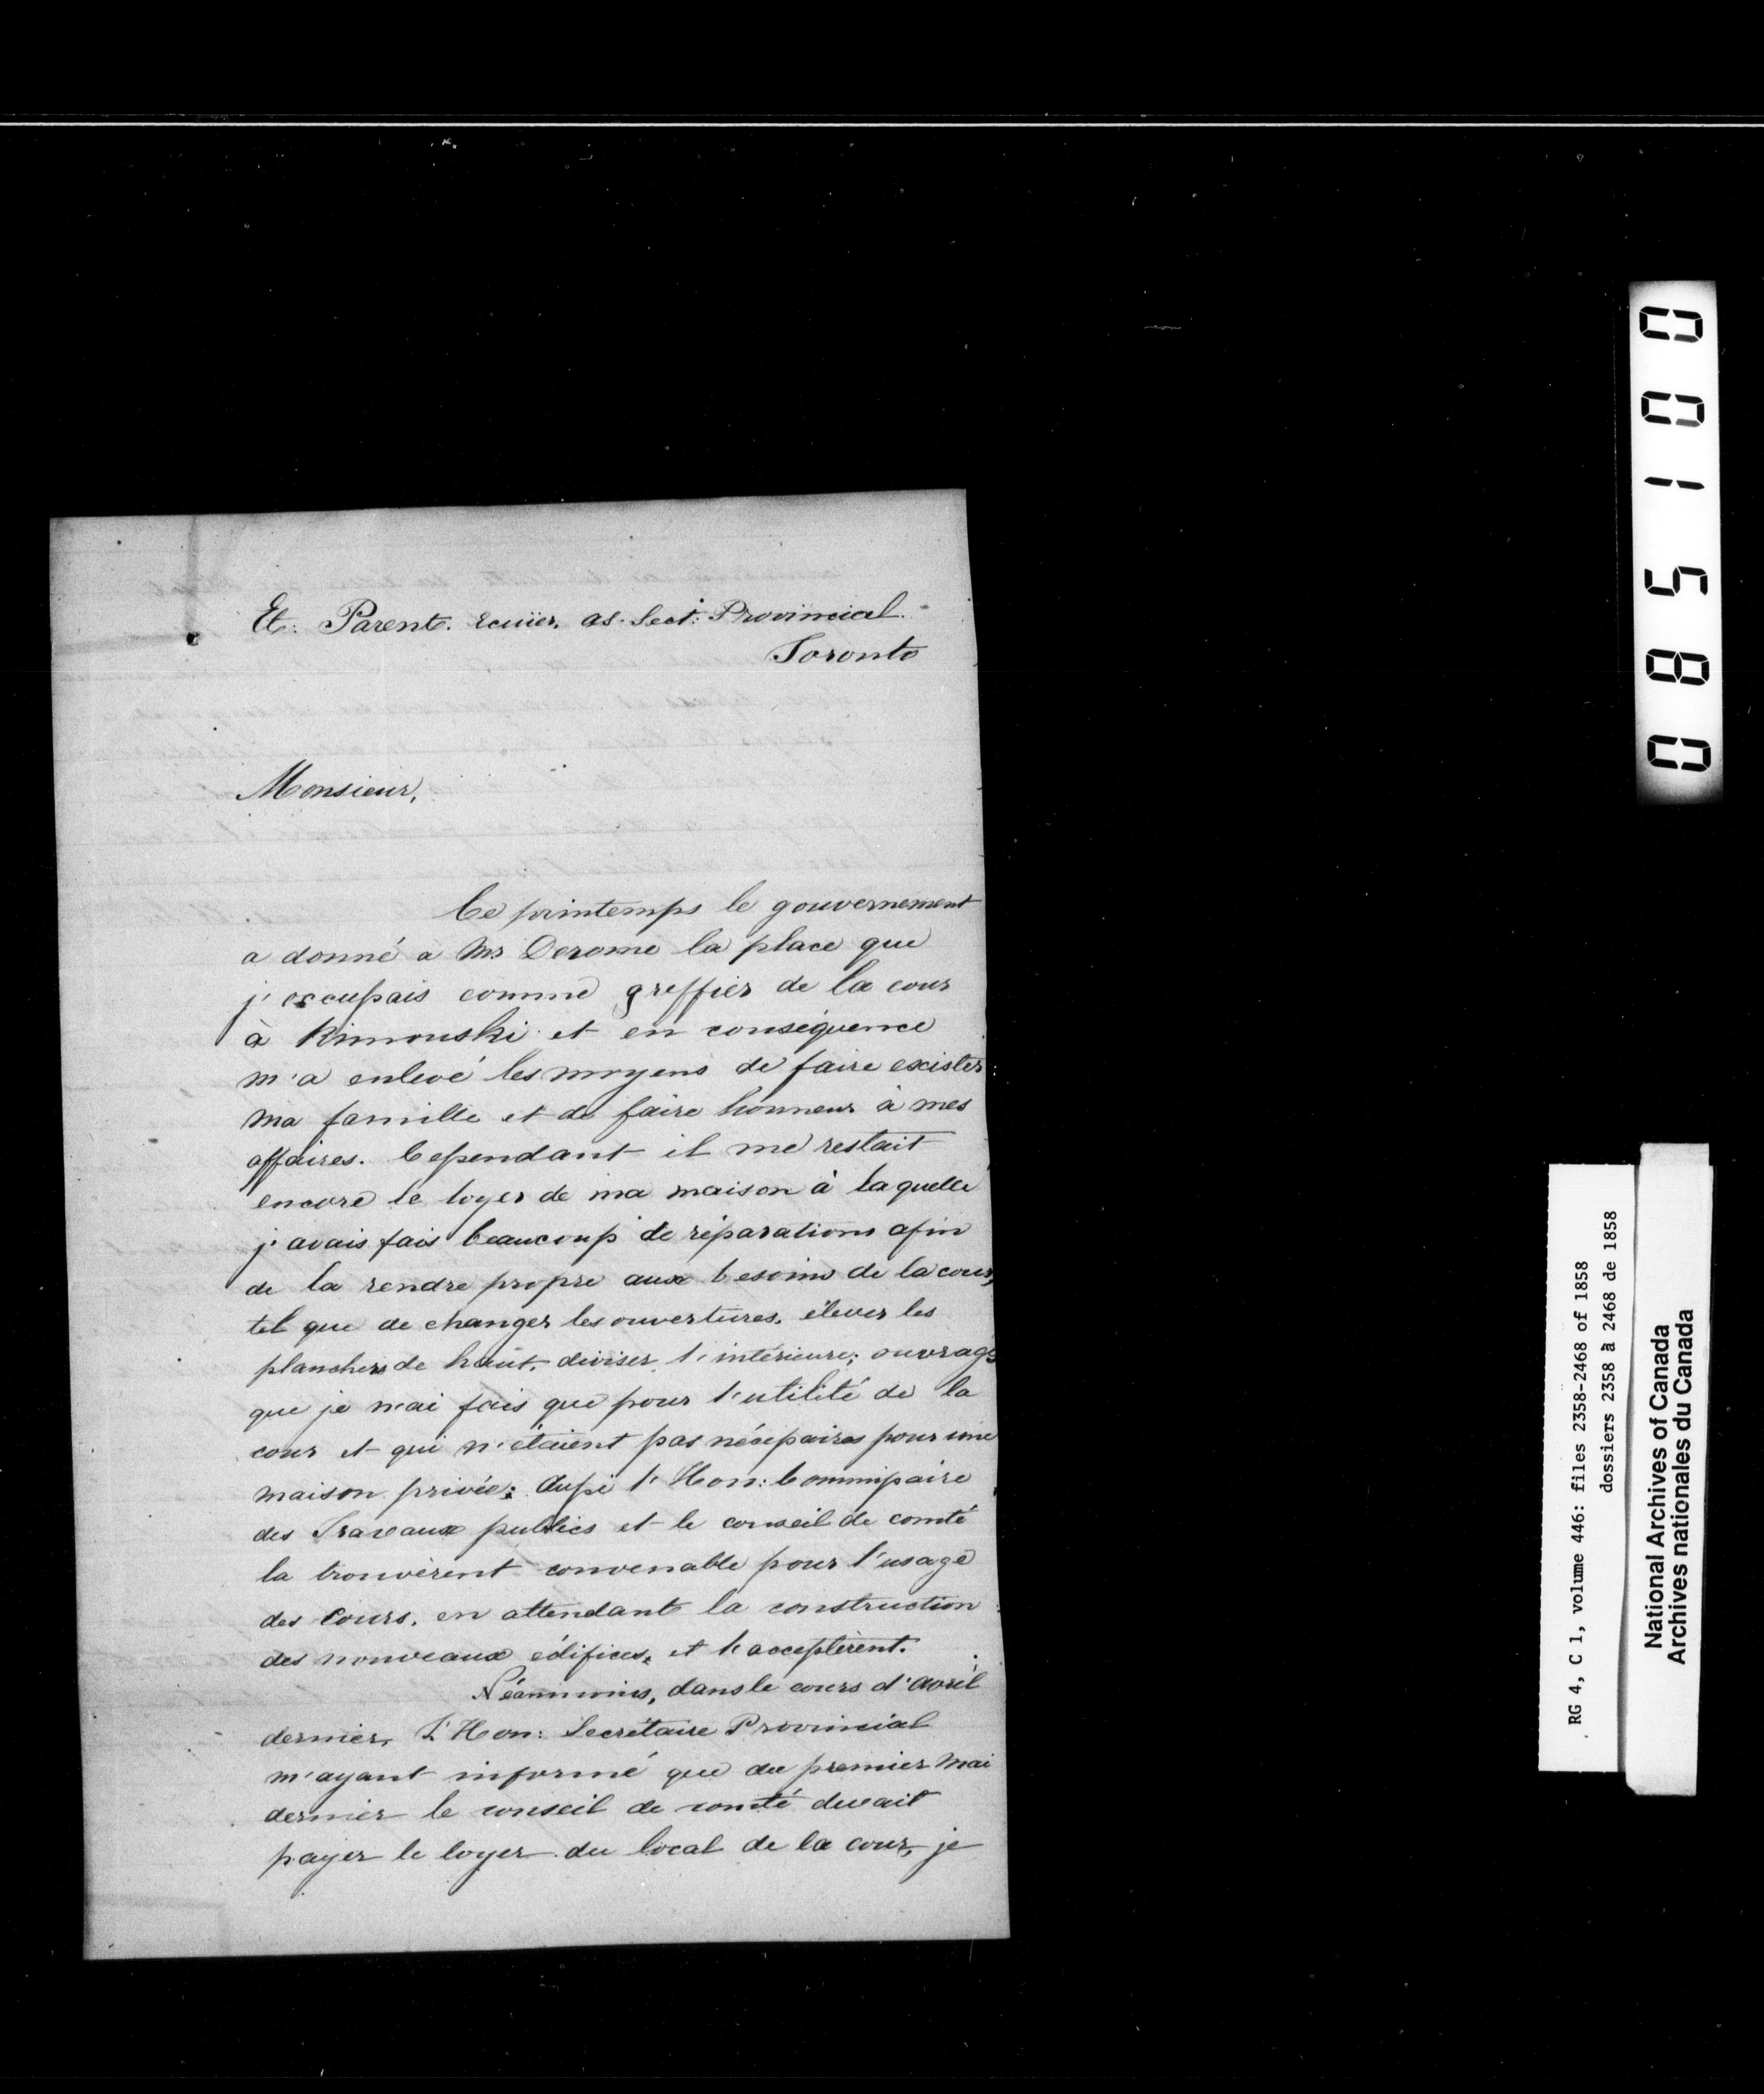 Et: Parent. Ecuïer, as. Sect: Provincial.
Toronto
Monsieur,
Ce printemps le gouvernement
a donné a Mr Derome la place que
j'occupais comme greffier de la cour
à Rimouski et en conséquence
m'a enlevé les moyens de faire exister
ma famille et de faire honneur à mes
affaires. Cependant il me restait
encore le loyer de ma maison à laquelle
j'avais fais beaucoup de réparations afin
de la rendre propre aux besoins de la cour,
tel que de changer les ouvertures, élever les
planchers de haut, diviser l'intérieure; ouvrage
que je n'ai fais que pour l'utilité de la
cour et qui n'étaient pas nécessaires pour une
maison privée; Aussi l'Hon: Commissaire
des Travaux publics et le conseil de comté
la trouvèrent convenable pour l'usage
des Cours, en attendant la construction
des nouveaux édifices, et l'acceptèrent.
Néanmoins, dans le cours d'avril
dernier, L'Hon: Secrétaire Provincial
m'ayant informé que du premier Mai
dernier le conseil de comté devait
payer le loyer du local de la cour, je
085100
RG 4, C 1, volume 446: files 2358-2468 of 1858
dossiers 2358 à 2468 de 1858
National Archives of Canada
Archives nationales du Canada